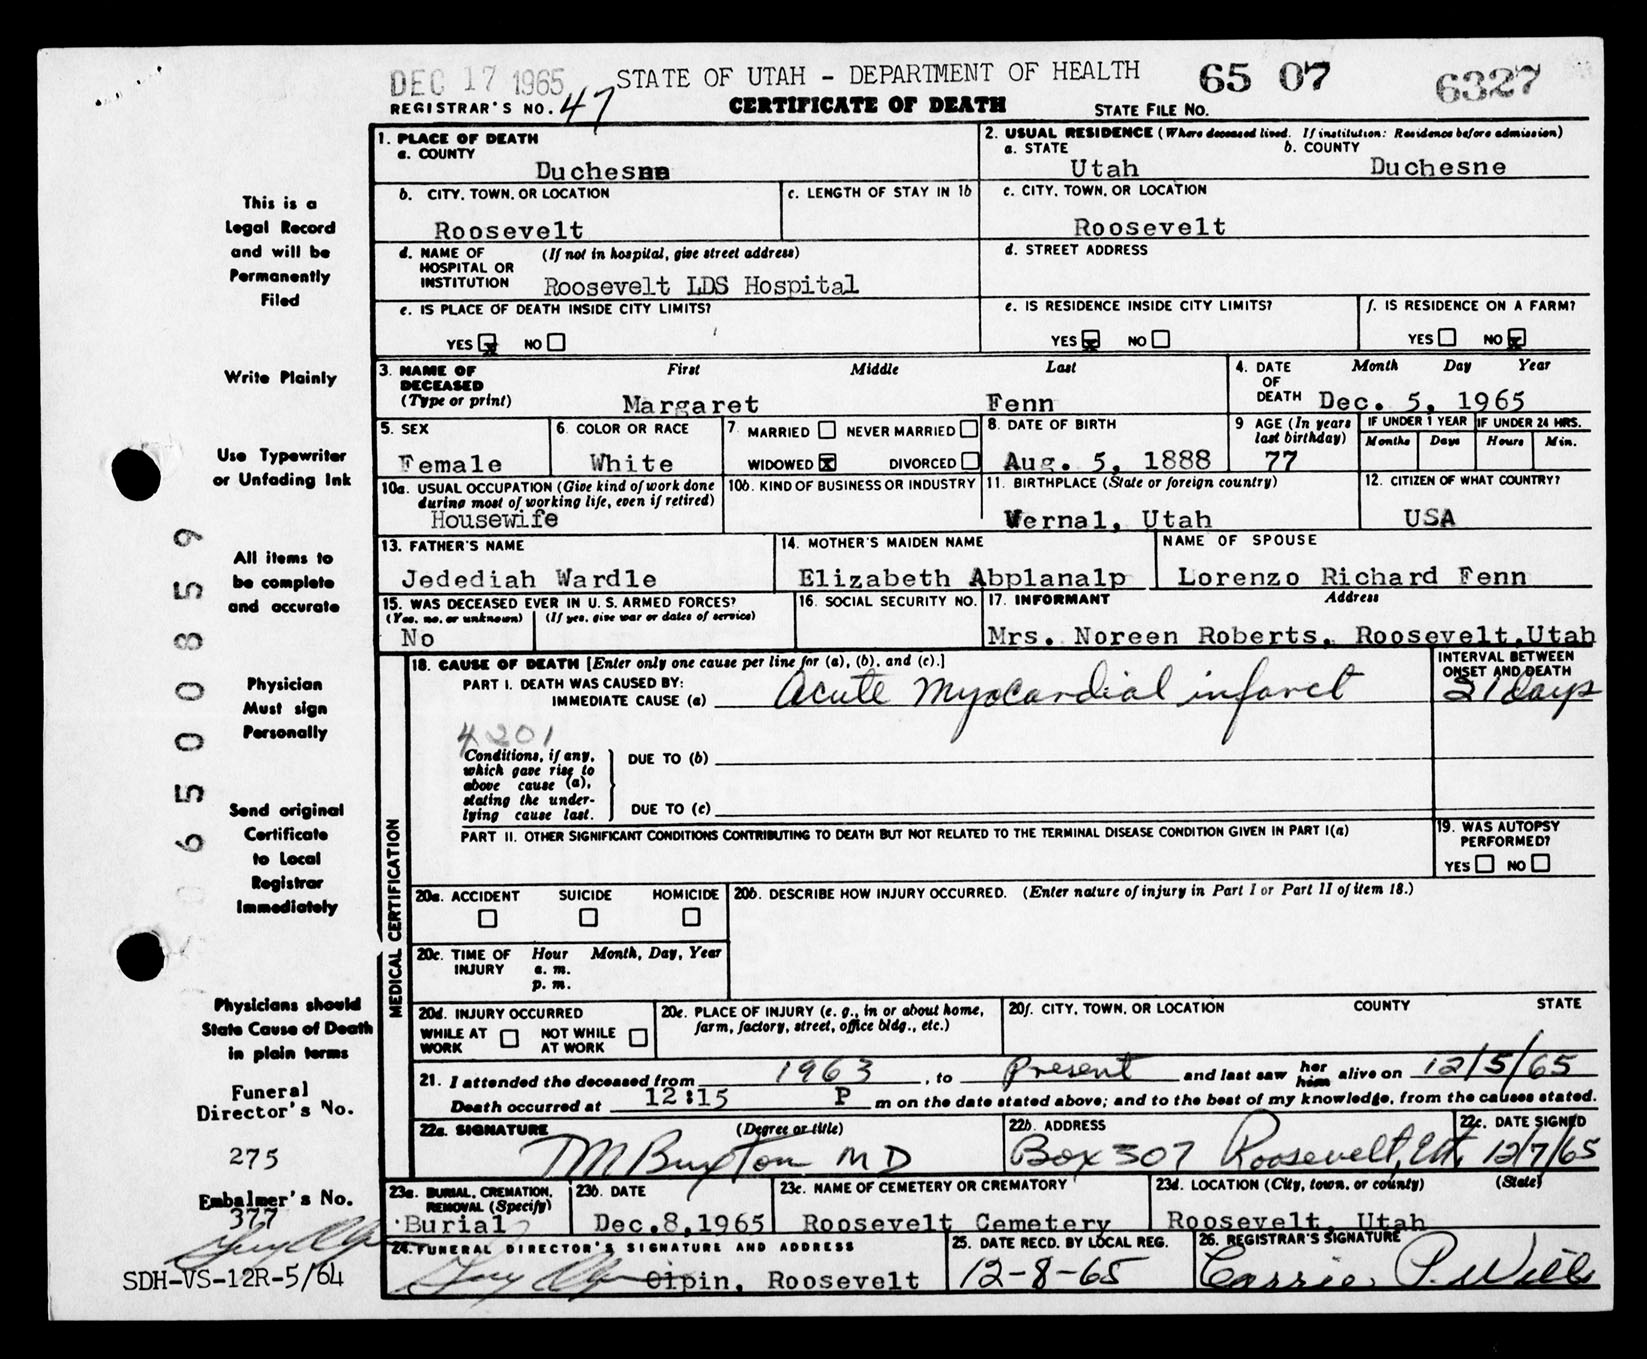 DEC 17 1965 STATE OF UTAH - DEPARTMENT OF HEALTH 65 07 6327
REGISTRAR'S NO. 47 CERTIFICATE OF DEATH STATE FILE NO.
This is a
Legal Record
and will be
Permanently
Filed
Write Plainly
Use Typewriter
or Unfading Ink
All items to
be complete
and accurate
Physician
Must sign
Personally
Send original
Certificate
to Local
Registrar
Immediately
Physicians should
State Cause of Death
in plain terms
Funeral
Director's No.
275
Embalmer's No.
377
SDH-VS-12R-5/64
065008 59
1. PLACE OF DEATH
a. COUNTY
Duchesne
2. USUAL RESIDENCE (Where deceased lived. If institution: Residence before admission)
a. STATE b. COUNTY
Utah Duchesne
b. CITY, TOWN, OR LOCATION c. LENGTH OF STAY IN 1b c. CITY, TOWN, OR LOCATION
Roosevelt Roosevelt
d. NAME OF (If not in hospital, give street address) d. STREET ADDRESS
HOSPITAL OR
INSTITUTION Roosevelt LDS Hospital
e. IS PLACE OF DEATH INSIDE CITY LIMITS? e. IS RESIDENCE INSIDE CITY LIMITS? f. IS RESIDENCE ON A FARM?
YES X NO YES X NO YES NO X
3. NAME OF First Middle Last 4. DATE Month Day Year
DECEASED OF
(Type or print) Margaret Fenn DEATH Dec. 5, 1965
5. SEX 6. COLOR OR RACE 7. MARRIED NEVER MARRIED 8. DATE OF BIRTH 9 AGE (In years IF UNDER 1 YEAR IF UNDER 24 HRS.
last birthday) Months Days Hours Min.
Female White WIDOWED X DIVORCED Aug. 5, 1888 77
10a. USUAL OCCUPATION (Give kind of work done 10b. KIND OF BUSINESS OR INDUSTRY 11. BIRTHPLACE (State or foreign country) 12. CITIZEN OF WHAT COUNTRY?
during most of working life, even if retired)
Housewife Vernal, Utah USA
13. FATHER'S NAME 14. MOTHER'S MAIDEN NAME NAME OF SPOUSE
Jedediah Wardle Elizabeth Abplanalp Lorenzo Richard Fenn
15. WAS DECEASED EVER IN U. S. ARMED FORCES? 16. SOCIAL SECURITY NO. 17. INFORMANT Address
(Yes, no, or unknown) (If yes, give war or dates of service)
No Mrs. Noreen Roberts, Roosevelt,Utah
MEDICAL CERTIFICATION
18. CAUSE OF DEATH [Enter only one cause per line for (a), (b), and (c).] INTERVAL BETWEEN
ONSET AND DEATH
PART I. DEATH WAS CAUSED BY:
IMMEDIATE CAUSE (a) Acute Myocardial infarct 21 days
4201
Conditions, if any,
which gave rise to
above cause (a),
stating the under-
lying cause last.
DUE TO (b)
DUE TO (c)
PART II. OTHER SIGNIFICANT CONDITIONS CONTRIBUTING TO DEATH BUT NOT RELATED TO THE TERMINAL DISEASE CONDITION GIVEN IN PART I(a)
19. WAS AUTOPSY
PERFORMED?
YES NO
20a. ACCIDENT SUICIDE HOMICIDE 20b. DESCRIBE HOW INJURY OCCURRED. (Enter nature of injury in Part I or Part II of item 18.)
20c. TIME OF Hour Month, Day, Year
INJURY a. m.
p. m.
20d. INJURY OCCURRED 20e. PLACE OF INJURY (e. g., in or about home, 20f. CITY, TOWN, OR LOCATION COUNTY STATE
farm, factory, street, office bldg., etc.)
WHILE AT NOT WHILE
WORK AT WORK
21. I attended the deceased from 1963, to Present and last saw her him alive on 12/5/65
Death occurred at 12:15 P m on the date stated above; and to the best of my knowledge, from the causes stated.
22a. SIGNATURE (Degree or title) 22b. ADDRESS 22c. DATE SIGNED
TM Buxton MD Box 307 Roosevelt, Ut. 12/7/65
23a. BURIAL, CREMATION, 23b. DATE 23c. NAME OF CEMETERY OR CREMATORY 23d. LOCATION (City, town, or county) (State)
REMOVAL (Specify)
Burial Dec.8,1965 Roosevelt Cemetery Roosevelt, Utah
24. FUNERAL DIRECTOR'S SIGNATURE AND ADDRESS 25. DATE RECD. BY LOCAL REG. 26. REGISTRAR'S SIGNATURE
Olpin, Roosevelt 12-8-65 Carrie P. Wills